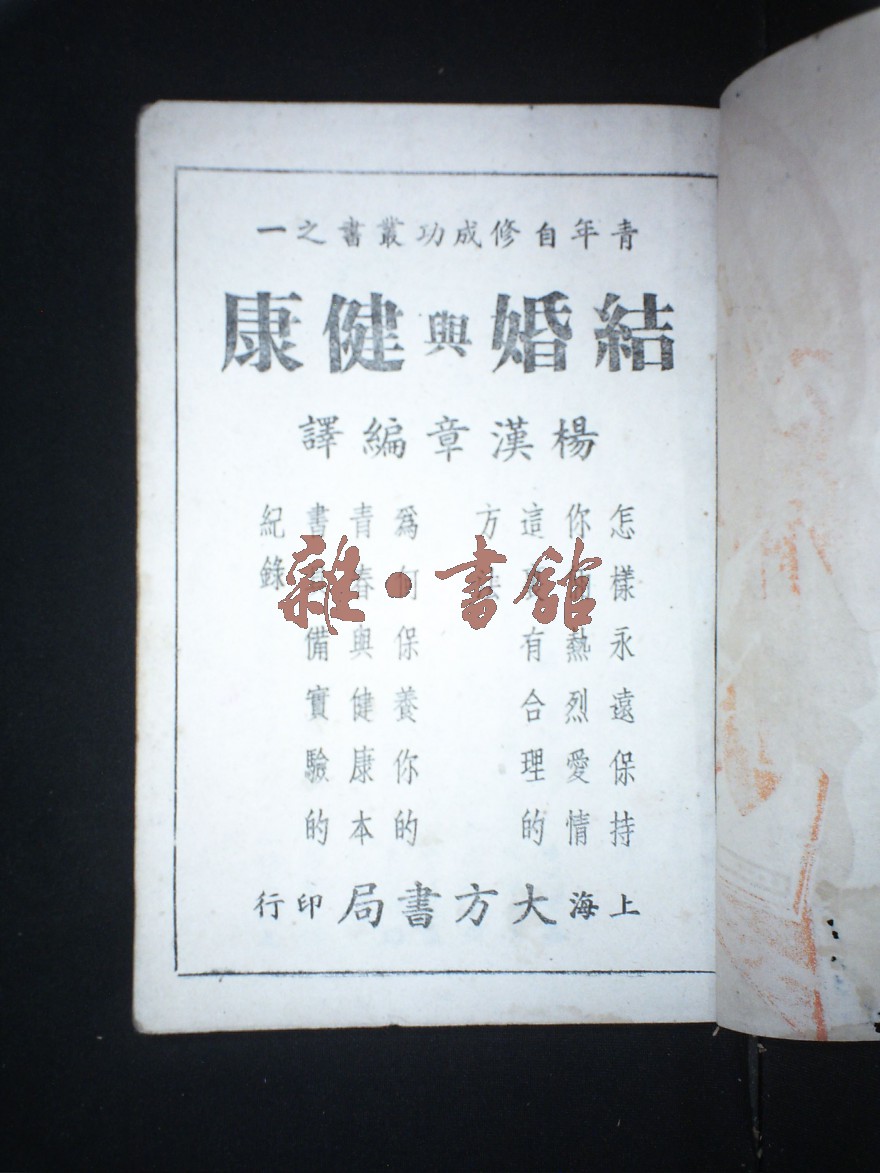 青年自修成功叢書之一
結婚與健康
楊漢章編譯
怎樣永遠保持
你 熱烈愛情
這 有合理的
方法
爲何保養你的
青春與健康本
書 備實驗的
紀錄
上海大方書局印行
雜·書館